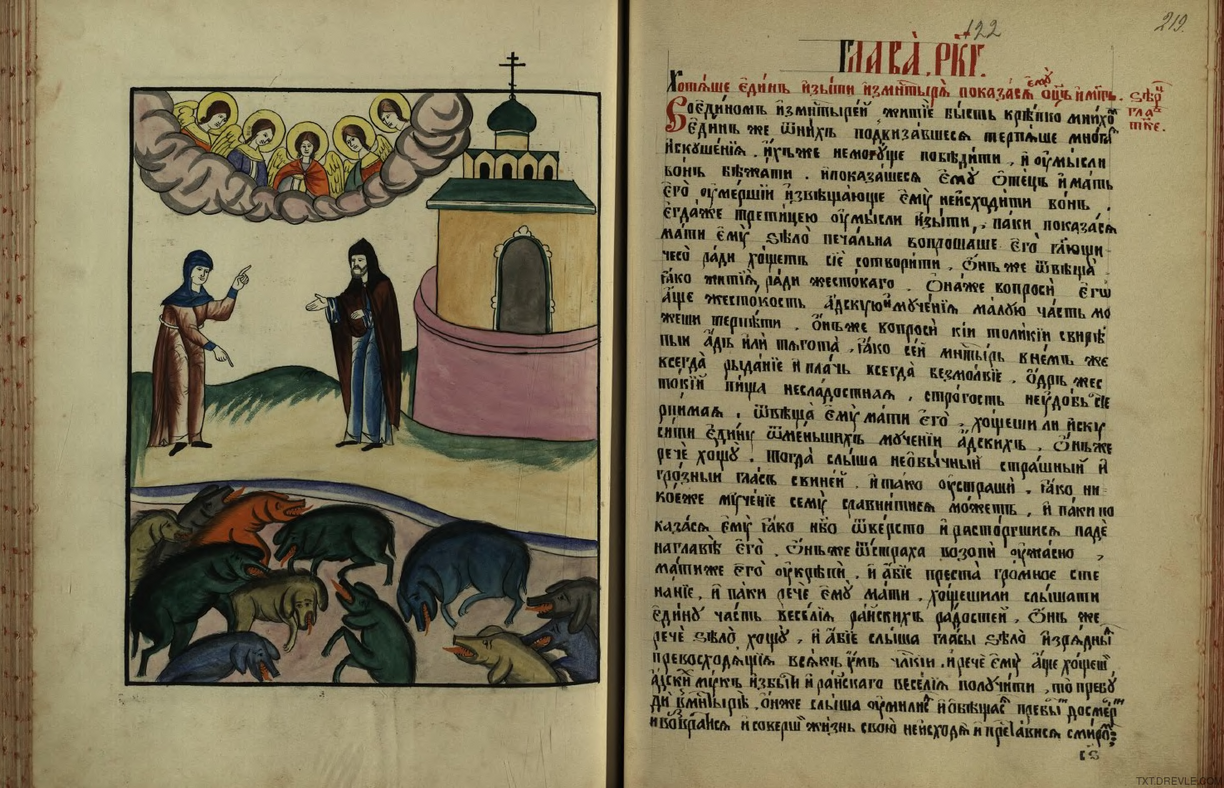 122
219.
ГЛАВА̀. РК҃Г.
Хотѧ́ше є҆ди́нъ и҆зы́ти и҆змн҃тырѧ̀ показа́сѧ є҆мꙋ̀ ѻ҆ц҃ъ и҆ мт҃ь.
Ѕе́р
гла
тк҃е.
Во є҆ди́номъ и҆змн҃тыре́й житїѐ бы́сть крѣ́пко мни́хо
Є҆ди́нъ же ѿни́хъ подвиза́вшесѧ терпѧ́ше мно́га
и҆скꙋше́нїѧ. и҆́хъже немогꙋ́ще побѣди́ти, и҆ ᲂу҆мы́сли
во́нъ бѣжа́ти. и҆показа́шесѧ є҆мꙋ̀ ѻ҆те́цъ и҆ ма́ть
є҆гѡ̀ ᲂу҆ме́ршїи и҆звѣща́юще є҆мꙋ̀ неи҆сходи́ти во́нъ.
є҆гда́же трети́цею ᲂу҆мы́сли и҆зы́ти, па́ки показа́сѧ
ма́ти є҆мꙋ̀ ѕѣлѡ̀ печа́льна вопроша́ше є҆гѡ̀ гл҃ющи
чесѡ̀ ра́ди хо́щеть сїѐ сотвори́ти. ѻ҆́нъ же ѿвѣща̀
ꙗ҆́кѡ житїѧ̀ ра́ди же́стокаго. ѻ҆на́же вопросѝ є҆гѡ̀
а҆́ще же́стокость а҆́дскую и҆ мꙋче́нїѧ ма́лꙋю ча́сть мо
жеши терпѣ́ти. ѻ҆́нъже вопросѝ кі́и толи́кїи свирѣ
пыи а҆́дъ и҆лѝ тѧгота̀, ꙗ҆́кѡ се́й мн҃ты́рь внемъ же
всегда̀ рыда́нїе и҆ пла́чь всегда̀ безмо́лвїе. ѻ҆́дръ жес
токі́й пи́ща несла́достнаѧ, стро́гость неꙋдо́бь сїе
рпимаѧ. ѿвѣща̀ є҆мꙋ̀ ма́ти є҆гѡ̀, хо́щеши ли и҆скꙋ
сити є҆ди́нꙋ ѿме́ньшихъ мꙋче́нїи а҆́дскихъ. ѻ҆́нъже
речѐ хощꙋ̀. тогда̀ слы́ша неѻ҆бы́чный стра́шный и҆
гро́зныи гла́съ свине́й. и҆ та́кѡ ᲂу҆страшѝ. ꙗ҆́кѡ ни
коеже мꙋче́нїе семꙋ̀ сравни́тисѧ мо́жеть, и҆ па́ки по
каза́сѧ є҆мꙋ̀ ꙗ҆́кѡ нб҃о ѿве́рсто и҆ расто́ргшисѧ падѐ
на главꙋ̀ є҆гѡ̀. ѻ҆́нъже ѿстра́ха возопѝ ᲂу҆жа́сно,
ма́тиже є҆гѡ̀ ᲂу҆крѣпѝ. и҆ а҆́бїе преста̀ гро́мное сте
на́нїе, и҆ па́ки речѐ є҆мꙋ̀ ма́ти. хо́щешили слы́шати
є҆ди́нꙋ ча́сть весе́лїѧ ра́йскихъ ра́достей. ѻ҆́нъ же
речѐ ѕѣлѡ̀ хощꙋ̀, и҆ а҆́бїе слы́ша гла́сы ѕѣлѡ̀ и҆зрѧ́дны
превосходѧ́щїѧ всѧ́къ ᲂу҆́мъ чл҃чкїи. и҆ речѐ є҆мꙋ̀ а҆́ще хо́щеши
а҆́дскїи мꙋ́къ и҆збы́ти и҆ ра́йскаго весе́лїѧ полꙋчи́ти, то пребꙋ
ди вмн҃ты́рѣ. ѻ҆́нже слы́ша ᲂу҆мили́с и҆ ѻ҆бѣща́с пребы́ти досме́р
и҆ возврати́сѧ и҆ совершѝ жи́знь свою̀ неи҆сходѧ̀ и҆ преста́висѧ сми́ром:
TXT.DREVLE.COM